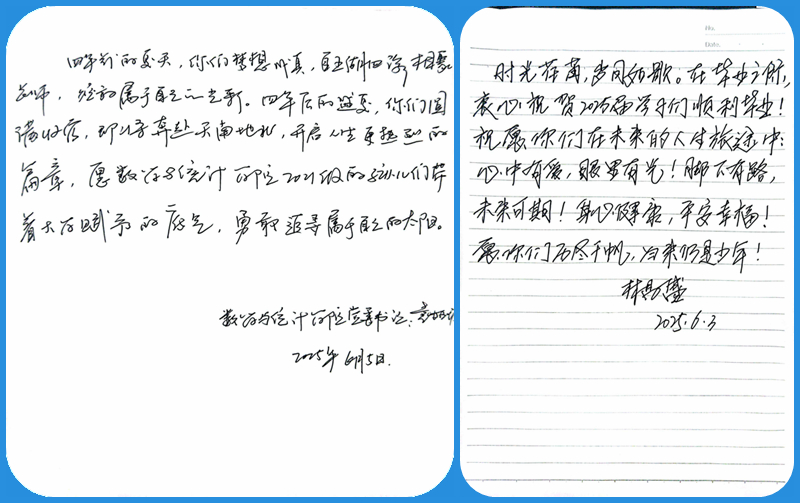 四年前的夏天，你们梦想成真，自五湖四海相聚
四年后的盛夏，你们圆
满收官，即将奔赴天南地北，开启人生更热烈的
篇章，愿数学与统计学院2021级的幼儿们带
着大学赋予的底气，勇敢追寻属于自己的太阳。
数学与统计学院党委书记：
2025年6月5日.
No.
Date.
时光荏苒，当风如歌。在毕业之际，
衷心祝贺2025届学子们顺利毕业！
祝愿你们在未来的人生旅途中：
心中有爱，眼里有光！脚下有路，
未来可期！身心健康，平安幸福！
愿你们历尽千帆，归来仍是少年！
2025.6.3